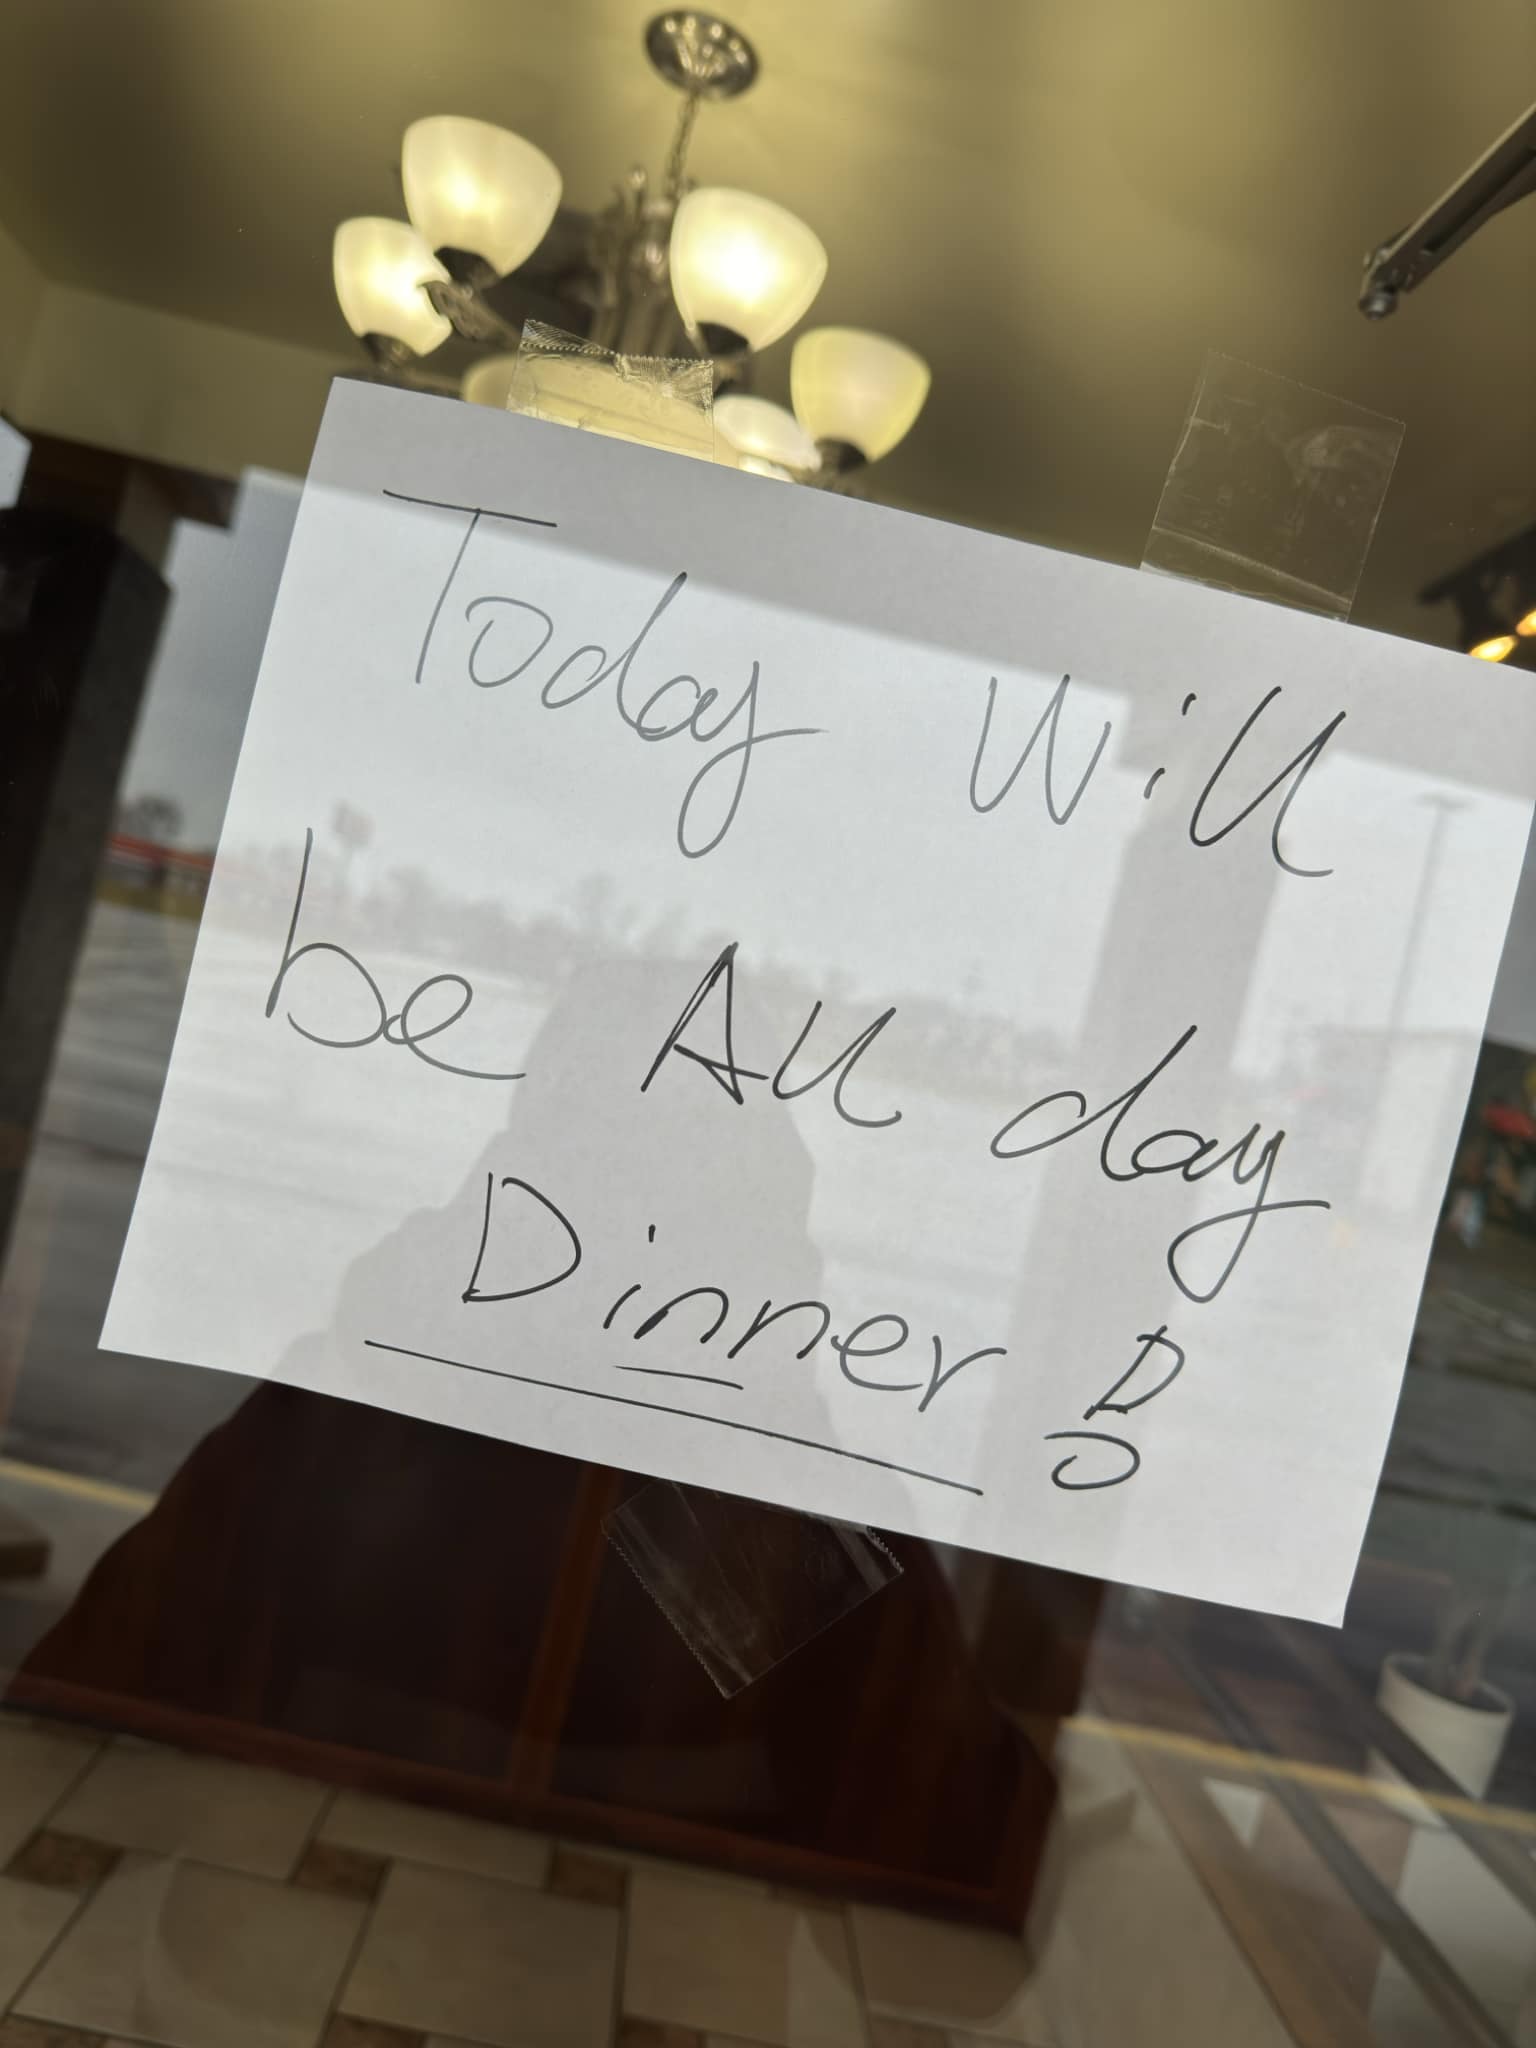 Today Will
be All day
Dinner !